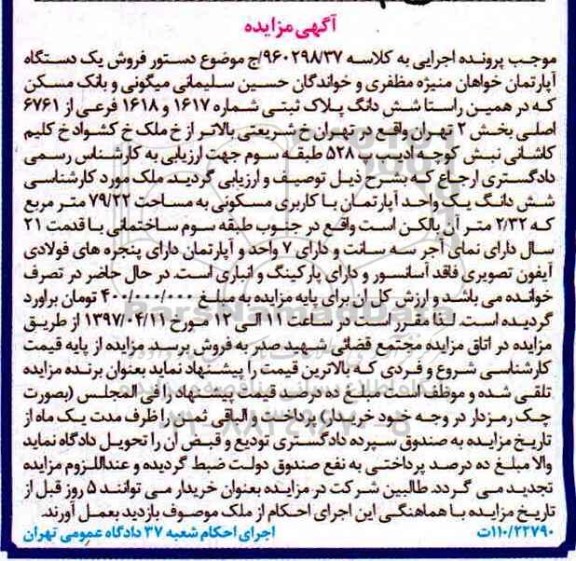 آگهی مزایده
موجب پرونده اجرایی به کلاسه ۹۶۰۲۹۸/۳۷/ج موضوع دستور فروش یک دستگاه
آپارتمان خواهان منیژه مظفری و خواندگان حسین سلیمانی میگونی و بانک مسکن
که در همین راستا شش دانگ پلاک ثبتی شماره ۱۶۱۷ و ۱۶۱۸ فرعی از ۶۷۶۱
اصلی بخش ۲ تهران واقع در تهران خ شریعتی بالاتر از خ ملک خ کشواد خ کلیم
کاشانی نبش کوچه ادیب پ ۵۲۸ طبقه سوم جهت ارزیابی به کارشناس رسمی
دادگستری ارجاع که بشرح ذیل توصیف و ارزیابی گردید. ملک مورد کارشناسی
شش دانگ یک واحد آپارتمان با کاربری مسکونی به مساحت ۷۹/۲۲ متر مربع
که ۲/۳۲ متر آن بالکن است واقع در جنوب طبقه سوم ساختمانی با قدمت ۲۱
سال دارای نمای آجر سه سانت و دارای ۷ واحد و آپارتمان دارای پنجره های فولادی
آیفون تصویری فاقد آسانسور و دارای پارکینگ و انباری است. در حال حاضر در تصرف
خوانده می باشد و ارزش کل آن برای پایه مزایده به مبلغ ۴۰۰/۰۰۰/۰۰۰ تومان براورد
گردیده است. لذا مقرر است در ساعت ۱۱ الی ۱۲ مورخ ۱۳۹۷/۰۴/۱۱ از طریق
مزایده در اتاق مزایده مجتمع قضائی شهید صدر به فروش برسد. مزایده از پایه قیمت
کارشناسی شروع و فردی که بالاترین قیمت را پیشنهاد نماید بعنوان برنده مزایده
تلقی شده و موظف است مبلغ ده درصد قیمت پیشنهاد را فی المجلس (بصورت
چک رمزدار در وجه خود خریدار) پرداخت و الباقی ثمن را ظرف مدت یک ماه از
تاریخ مزایده به صندوق سپرده دادگستری تودیع و قبض آن را تحویل دادگاه نماید
والا مبلغ ده درصد پرداختی به نفع صندوق دولت ضبط گردیده و عنداللزوم مزایده
تجدید می گردد. طالبین شرکت در مزایده بعنوان خریدار می توانند ۵ روز قبل از
تاریخ مزایده با هماهنگی این اجرای احکام از ملک موصوف بازدید بعمل آورند.
۱۱۰/۲۲۷۹۰ت اجرای احکام شعبه ۳۷ دادگاه عمومی تهران